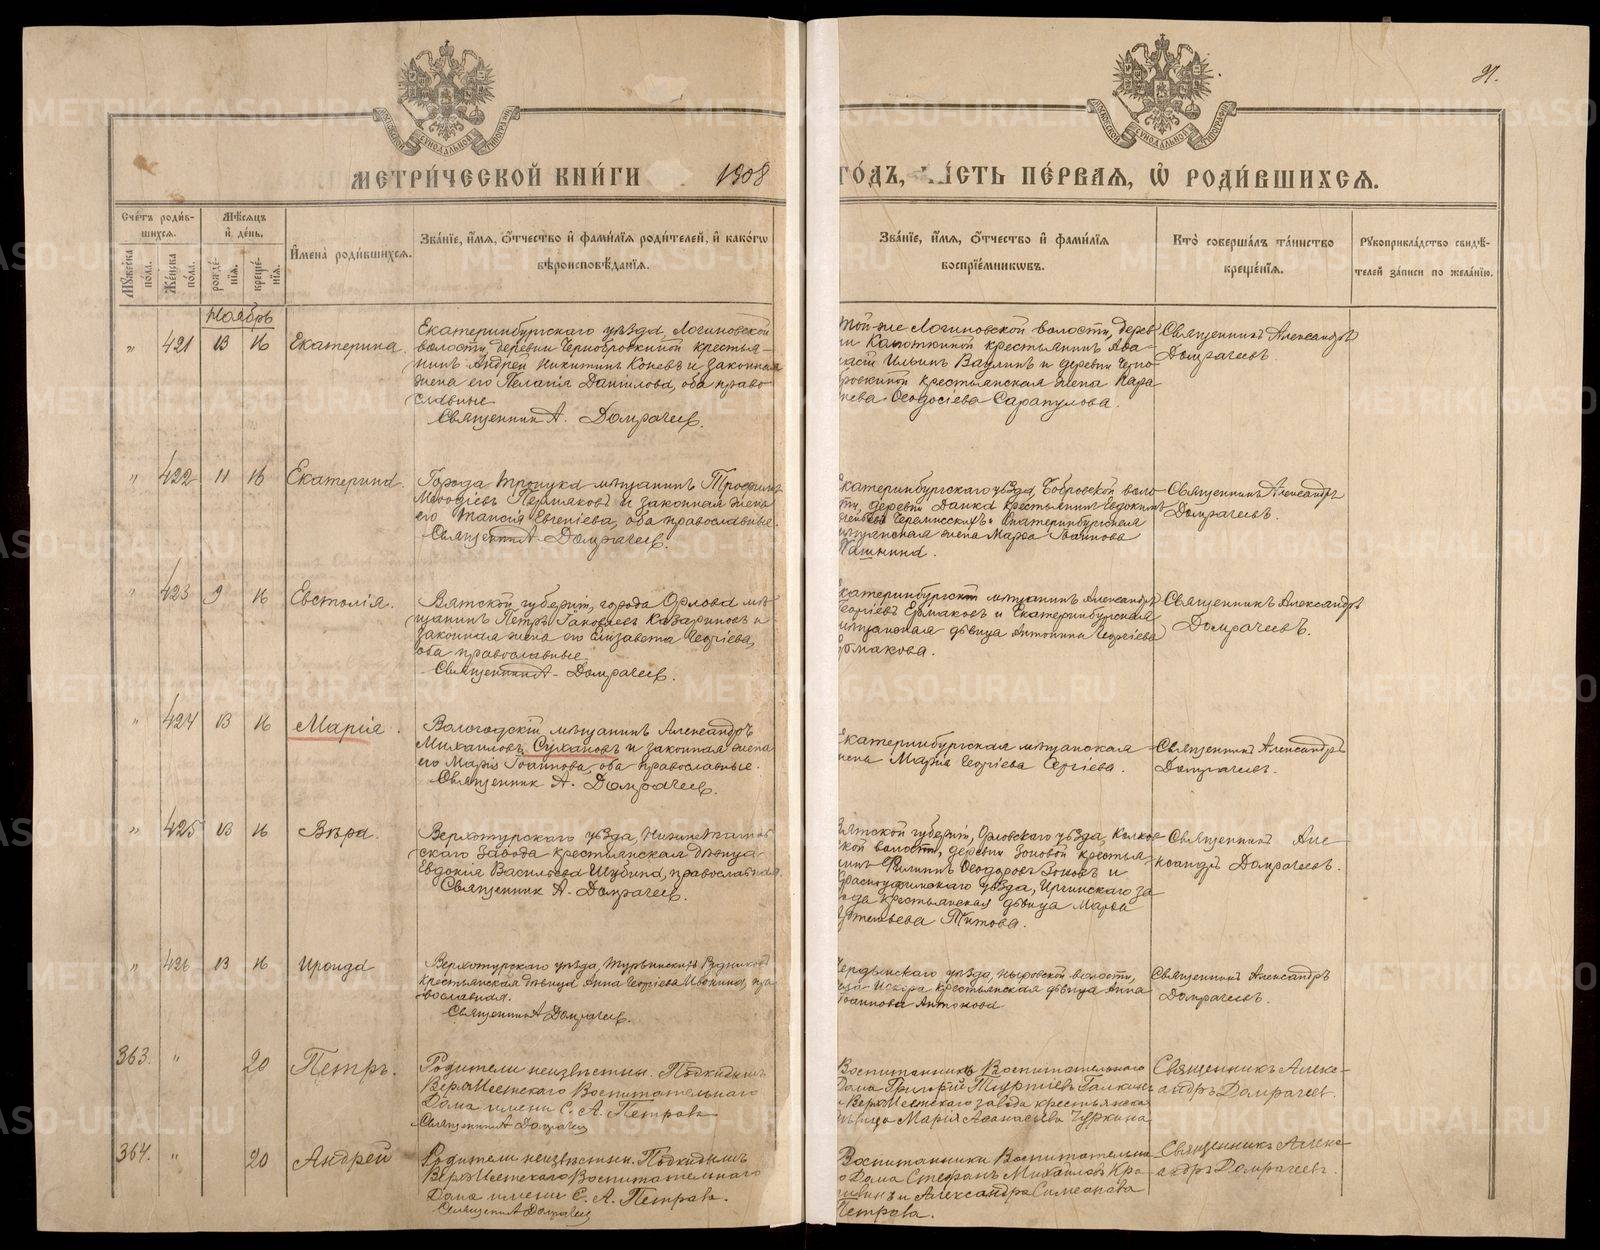 МЕТРИ́ЧЕСКОЙ КНИ́ГИ 1908
ГО́ДЪ, ЧА́СТЬ ПЕ́РВАЯ, Ѿ РОДИ́ВШИХСЯ.
Сче́тъ роди́в-
шихся.
Му́жеска по́ла.
Же́нска по́ла.
Мѣ́сяцъ и҆ де́нь.
рожде́-
нїя.
креще́-
нїя.
И҆мена̀ роди́вшихся.
Зва́нїе, и҆́мя, о҆́тчество и҆ фами́лїя роди́телей, и҆ како́гѡ
вѣроисповѣ́данїя.
Зва́нїе, и҆́мя, о҆́тчество и҆ фами́лїя
воспрїе́мникѡвъ.
Кто̀ соверша́лъ та́инство
креще́нїя.
Рукоприкла́дство свидѣ́-
телей за́писи по жела́нїю.
Ноябрь
" 421 13 16 Екатерина
Екатеринбургскаго уѣзда, Логиновской
волости, деревни Чернобровкиной крестья-
нинъ Андрей Никитинъ Коневъ и законная
жена его Пелагія Даніилова, оба право-
славные
Священник А. Домрачев.
той-же Логиновской волости, дерев-
ни крестьянинъ
Ильинъ Ваулинъ и деревни Черно
бровкиной крестьянская жена Пара
Ѳеодосіева Сарапулова.
Священникъ Александръ
Домрачевъ.
" 422 11 16 Екатерина.
Города Троицка мѣщанинъ Трофимъ
Меѳодіевъ Пермяковъ и законная жена
его Таисія Евгеніева, оба православные.
Священник А. Домрачев.
Екатеринбургскаго уѣзда, Бобровской воло-
сти, деревни крестьянинъ Евдокимъ
Екатеринбургская
мѣщанская жена Марѳа Іоаннова
Священникъ Александръ
Домрачевъ.
" 423 9 16 Евстолія.
Вятской губерніи, города Орлова мѣ-
щанинъ Петръ Іаковлевъ Казариновъ и
законная жена его Елизавета Георгіева,
оба православные
Священник А. Домрачев.
Екатеринбургскій мѣщанинъ Александръ
Георгіевъ Ермаковъ и Екатеринбургская
мѣщанская дѣвица Антонина Георгіева
Ермакова.
Священникъ Александръ
Домрачевъ.
" 424 13 16 Марія.
Вологодскій мѣщанинъ Александръ
Михаиловъ Сухановъ и законная жена
его Марія Іоаннова, оба православные.
Священник А. Домрачев.
Екатеринбургская мѣщанская
жена Марія Георгіева Сергіева.
Священникъ Александръ
Домрачевъ.
" 425 13 16 Вѣра.
Верхотурскаго уѣзда, Нижнетагиль
скаго завода крестьянская дѣвица
Евдокія Васильева Шубина, православная.
Священник А. Домрачев.
Вятской губерніи, Орловскаго уѣзда,
ской волости, деревни Зоновой крестья-
нинъ Филиппъ Ѳеодоровъ Зоновъ и
Красноуфимскаго уѣзда, Иргинскаго за
вода крестьянская дѣвица Марѳа
Артемьева Титова.
Священникъ Але
ксандръ Домрачевъ.
" 426 13 16 Ироида
Верхотурскаго уѣзда, Турьинскихъ Рудниковъ
крестьянская дѣвица Анна Георгіева пра
вославная.
Священник А Домрачев.
Чердынскаго уѣзда, Ныробской волости,
села Искора крестьянская дѣвица Анна
Іоаннова
Священникъ Александръ
Домрачевъ.
363. " 20 Петръ.
Родители неизвѣстны. Подкидышъ
ВерхИсетскаго Воспитательнаго
Дома имени С. А. Петрова
Священник А Домрачев
Воспитанникъ Воспитательнаго
Дома Григорій Галкинъ
и ВерхИсетскаго завода крестьянская
дѣвица Марія Аѳанасьева Чуркина
Священникъ Алекс-
андръ Домрачев.
364. " 20 Андрей
Родители неизвѣстны. Подкидышъ
ВерхИсетскаго Воспитательнаго
Дома имени С. А. Петрова.
Священник А Домрачев
Воспитанники Воспитательна-
го Дома Стефанъ Михайловъ
и Александра Симеонова
Петрова.
Священникъ Алекс-
андръ Домрачевъ.
METRIKI.GASO-URAL.RU